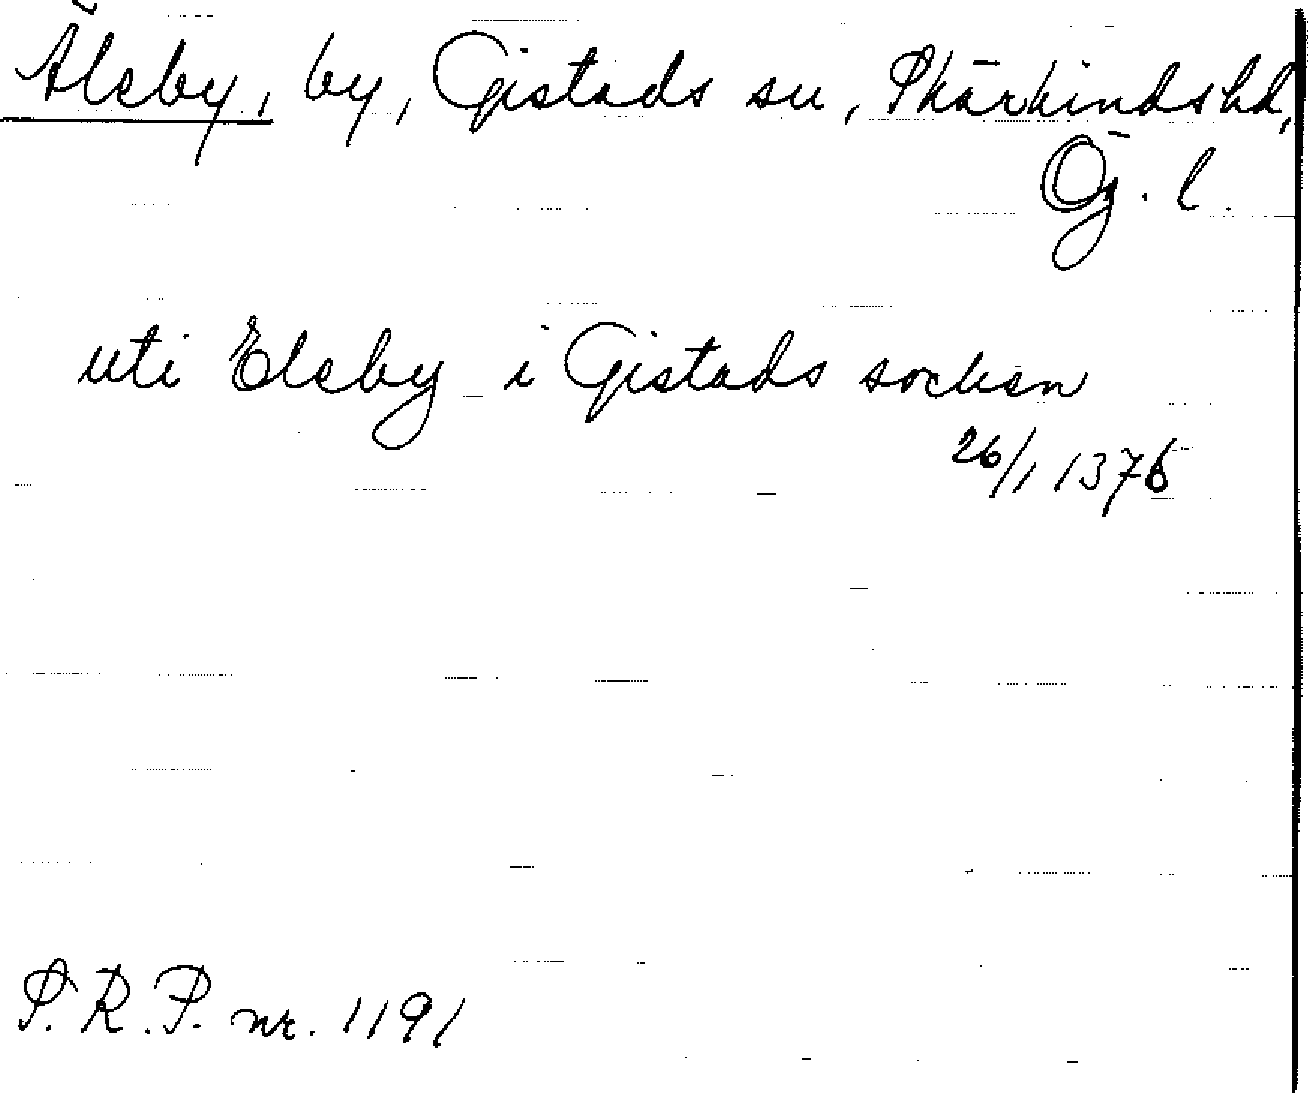 Älsby, by, Gistads sn, Skärkinds hd,
Ög. l.
uti Elsby i Gistads socken
26/1 1376
S.R.P. nr. 1191